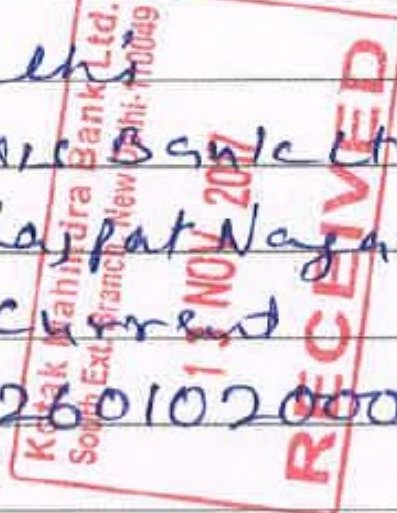 Bank
Lajpat Nagar
Current
260102000
Kotak Mahindra Bank Ltd.
South Ext. Branch New Delhi-110049
NOV 2017
RECEIVED